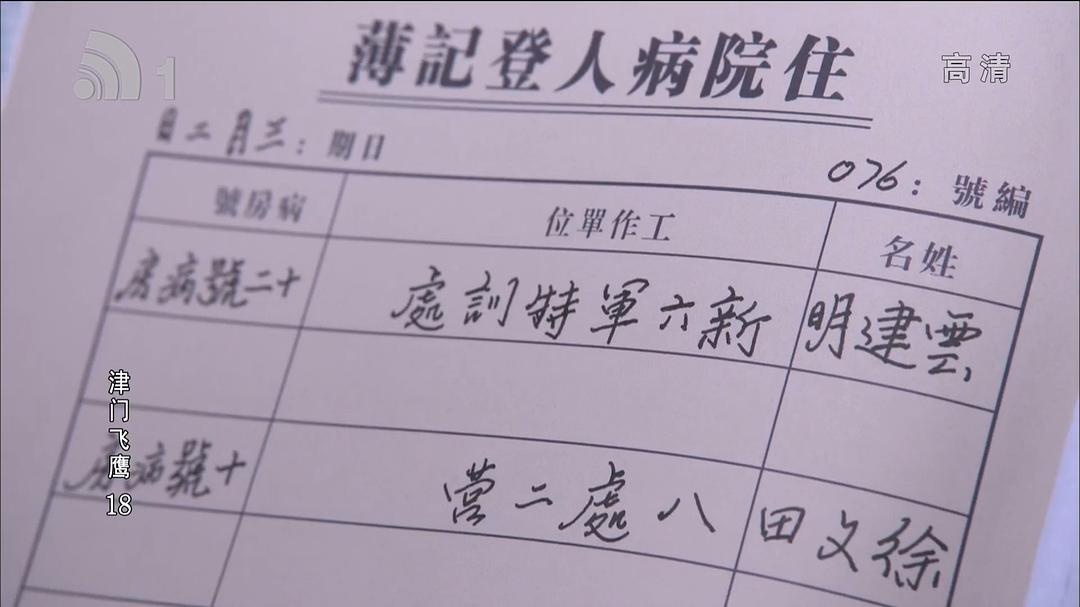 1
高清
住院病人登記薄
編號：076
日期：三月二日
姓名 工作單位 病房號
雲建明 新六軍特訓處 十二號病房
徐文田 八處二營 十號病房
津门飞鹰 18